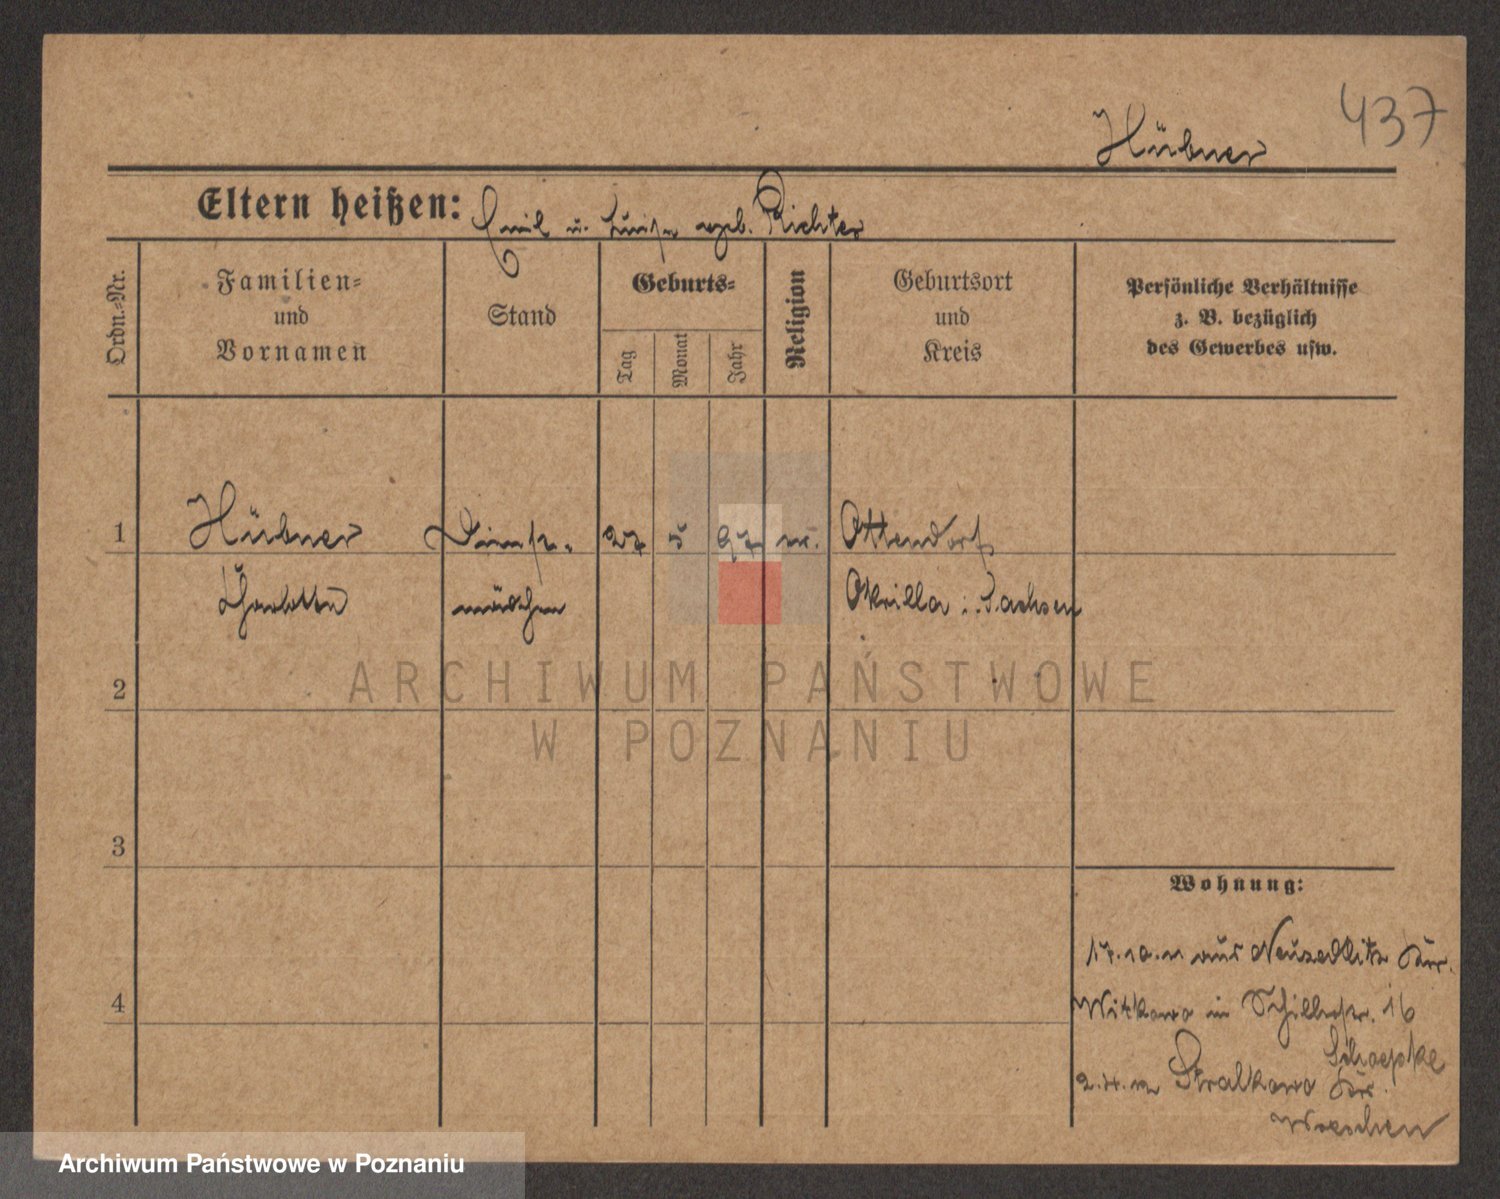 437
Hübner
Eltern heißen: Emil u. Luise geb. Richter
Ordn.-Nr.
Familien-
und
Vornamen
Stand
Geburts-
Tag
Monat
Jahr
Religion
Geburtsort
und
Kreis
Persönliche Verhältnisse
z. B. bezüglich
des Gewerbes usw.
1 Hübner Dienst- 27 5 97 Ottendorf
Charlotte mädchen Okrilla i. Sachsen
ARCHIWUM PAŃSTWOWE
W POZNANIU
2
3
4
Wohnung:
17.10.11 aus Neuzedlitz Kr.
Witkowo in Schillerstr. 16
Schoepke
2.4.12 Stralkowo Kr.
Wreschen
Archiwum Państwowe w Poznaniu